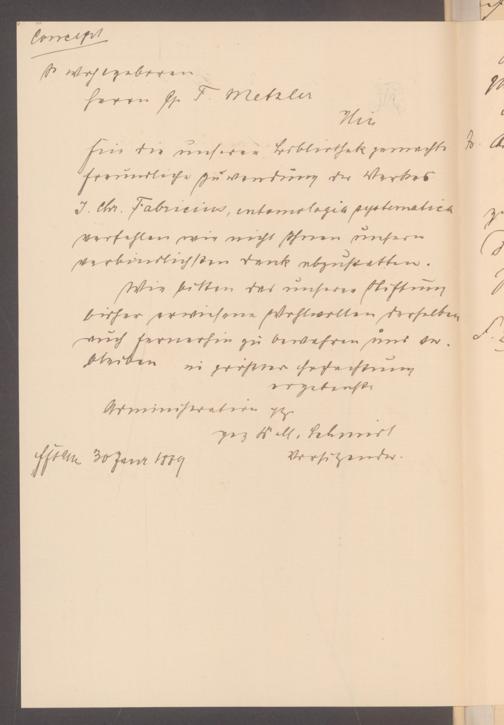 Concept
Sr Wohlgeboren
Herrn G. F. Metzler
Hier
Für die unserer Bibliothek gemachte
freundliche Zuwendung des Werkes
J. Chr. Fabricius, entomologia systematica
verfehlen wir nicht Ihnen unsern
verbindlichsten Dank abzustatten.
Wir bitten das unserer Stiftung
bisher erwiesene Wohlwollen derselben
auch fernerhin zu bewahren und ver-
bleiben in größter Hochachtung
ergebenst
Administration
gez Schmidt
Vorsitzender.
30 Janr 1889